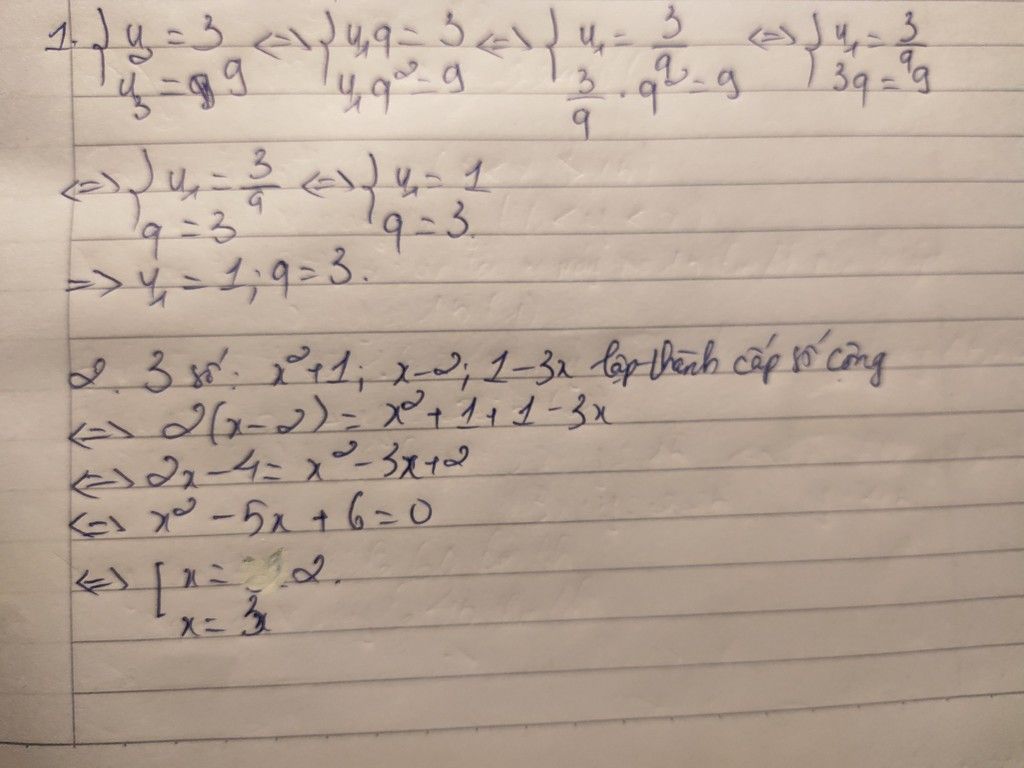 1. { u₂ = 3 ⇔ { u₁q = 3 ⇔ { u₁ = 3/q ⇔ { u₁ = 3/q
u₃ = 9 u₁q² = 9 3/q · q² = 9 3q = 9
⇔ { u₁ = 3/q ⇔ { u₁ = 1
q = 3 q = 3.
=> u₁ = 1; q = 3.
2. 3 số: x²+1; x-2; 1-3x lập thành cấp số cộng
⇔ 2(x-2) = x²+1+1-3x
⇔ 2x-4 = x²-3x+2
⇔ x²-5x+6=0
⇔ [ x = 2.
x = 3